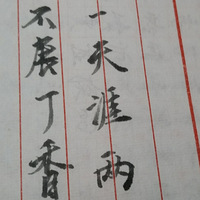 一天涯两
不展丁香